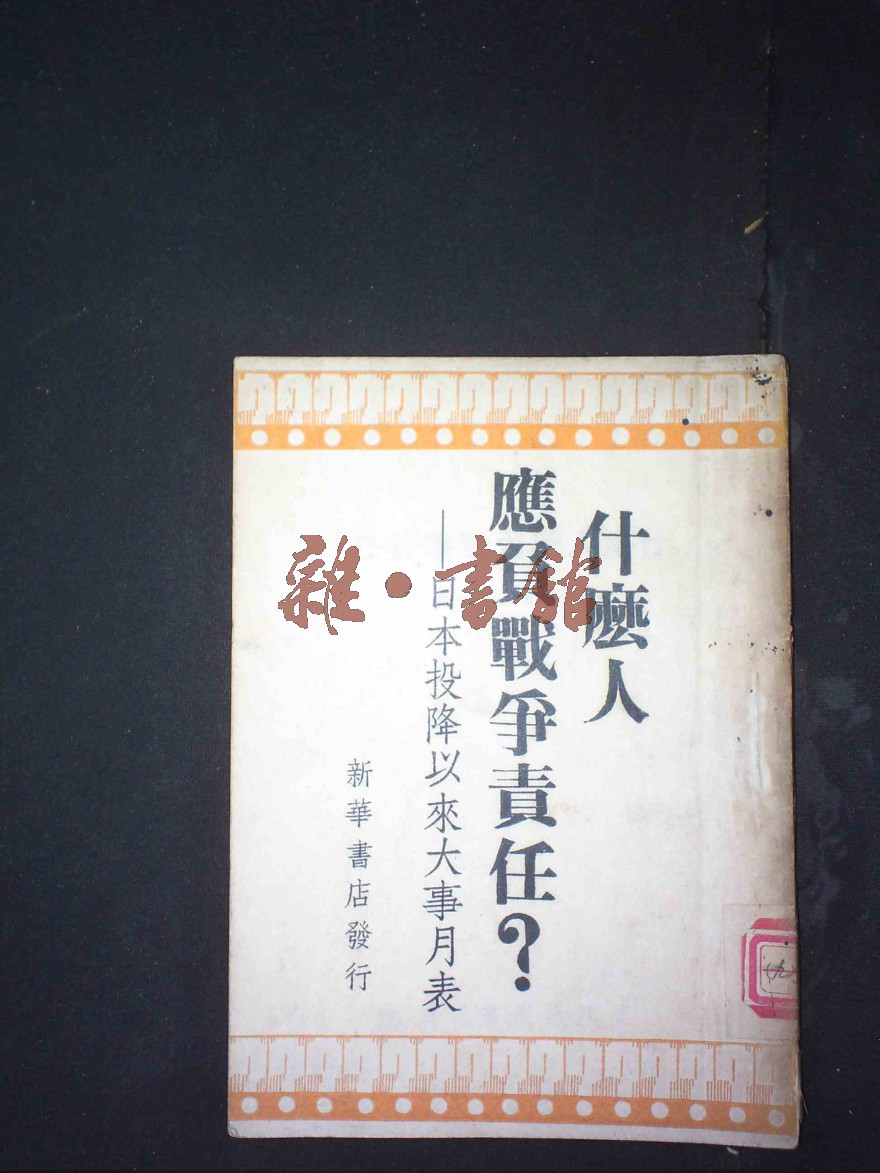 什麽人
應負戰爭責任?
——日本投降以來大事月表
新華書店發行
雜·書館